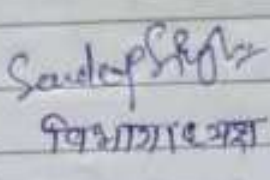 Sandeep Singh
विभागाध्यक्ष